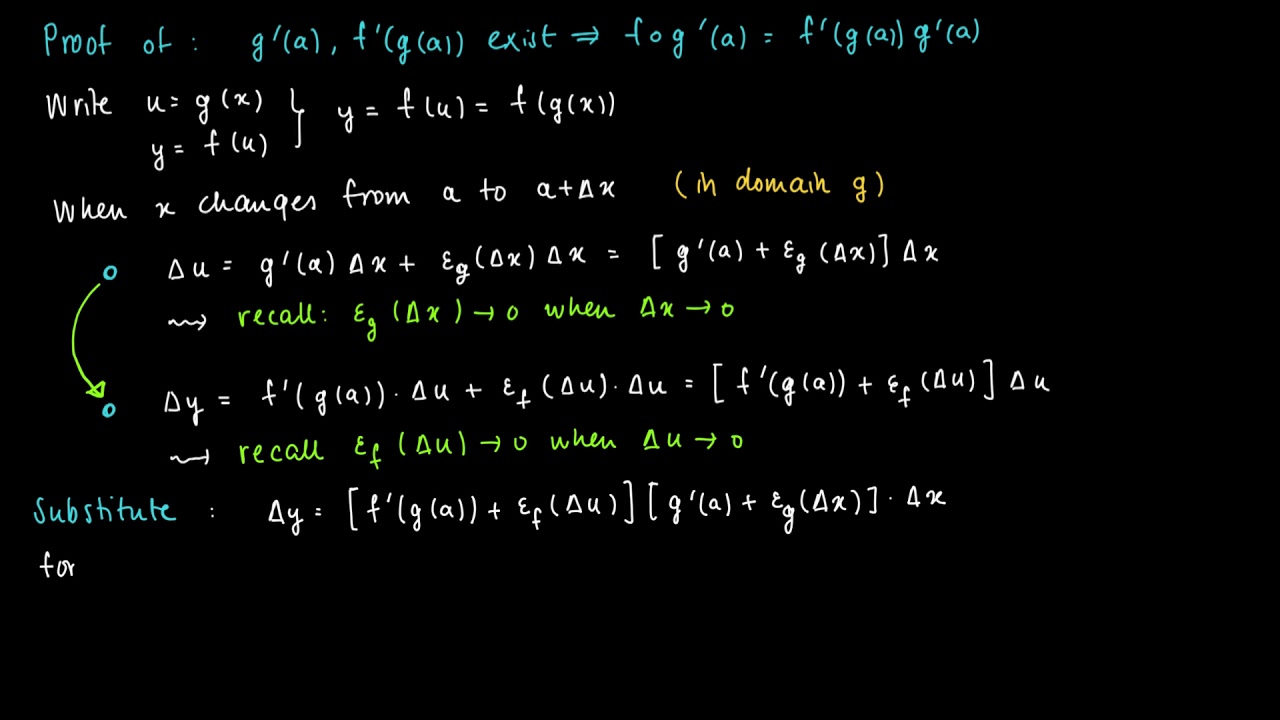 Proof of : g'(a), f'(g(a)) exist ⇒ f∘g'(a) = f'(g(a)) g'(a)
Write u = g(x) } y = f(u) = f(g(x))
y = f(u)
When x changes from a to a+Δx (in domain g)
Δu = g'(a) Δx + ε_g(Δx) Δx = [g'(a) + ε_g(Δx)] Δx
⇝ recall: ε_g(Δx) → 0 when Δx → 0
Δy = f'(g(a))·Δu + ε_f(Δu)·Δu = [f'(g(a)) + ε_f(Δu)] Δu
⇝ recall ε_f(Δu) → 0 when Δu → 0
Substitute : Δy = [f'(g(a)) + ε_f(Δu)][g'(a) + ε_g(Δx)]·Δx
for